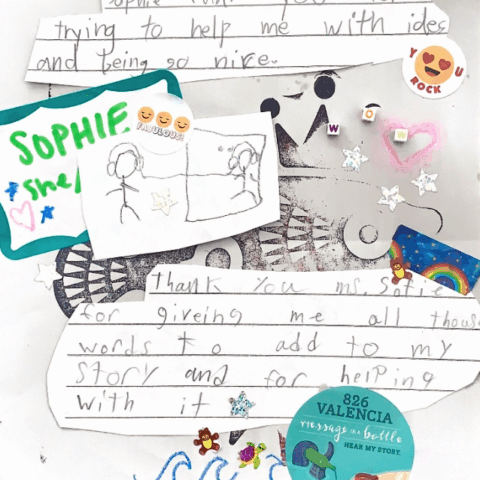 Sophie
you
trying to help me with ides
and being so nice.
YOU
ROCK
WOW
FABULOUS!
SOPHIE
she/
Thank you ms. Sofie
for giveing me all thous
words to add to my
Story and for helping
with it
826
VALENCIA
message in a bottle
HEAR MY STORY.